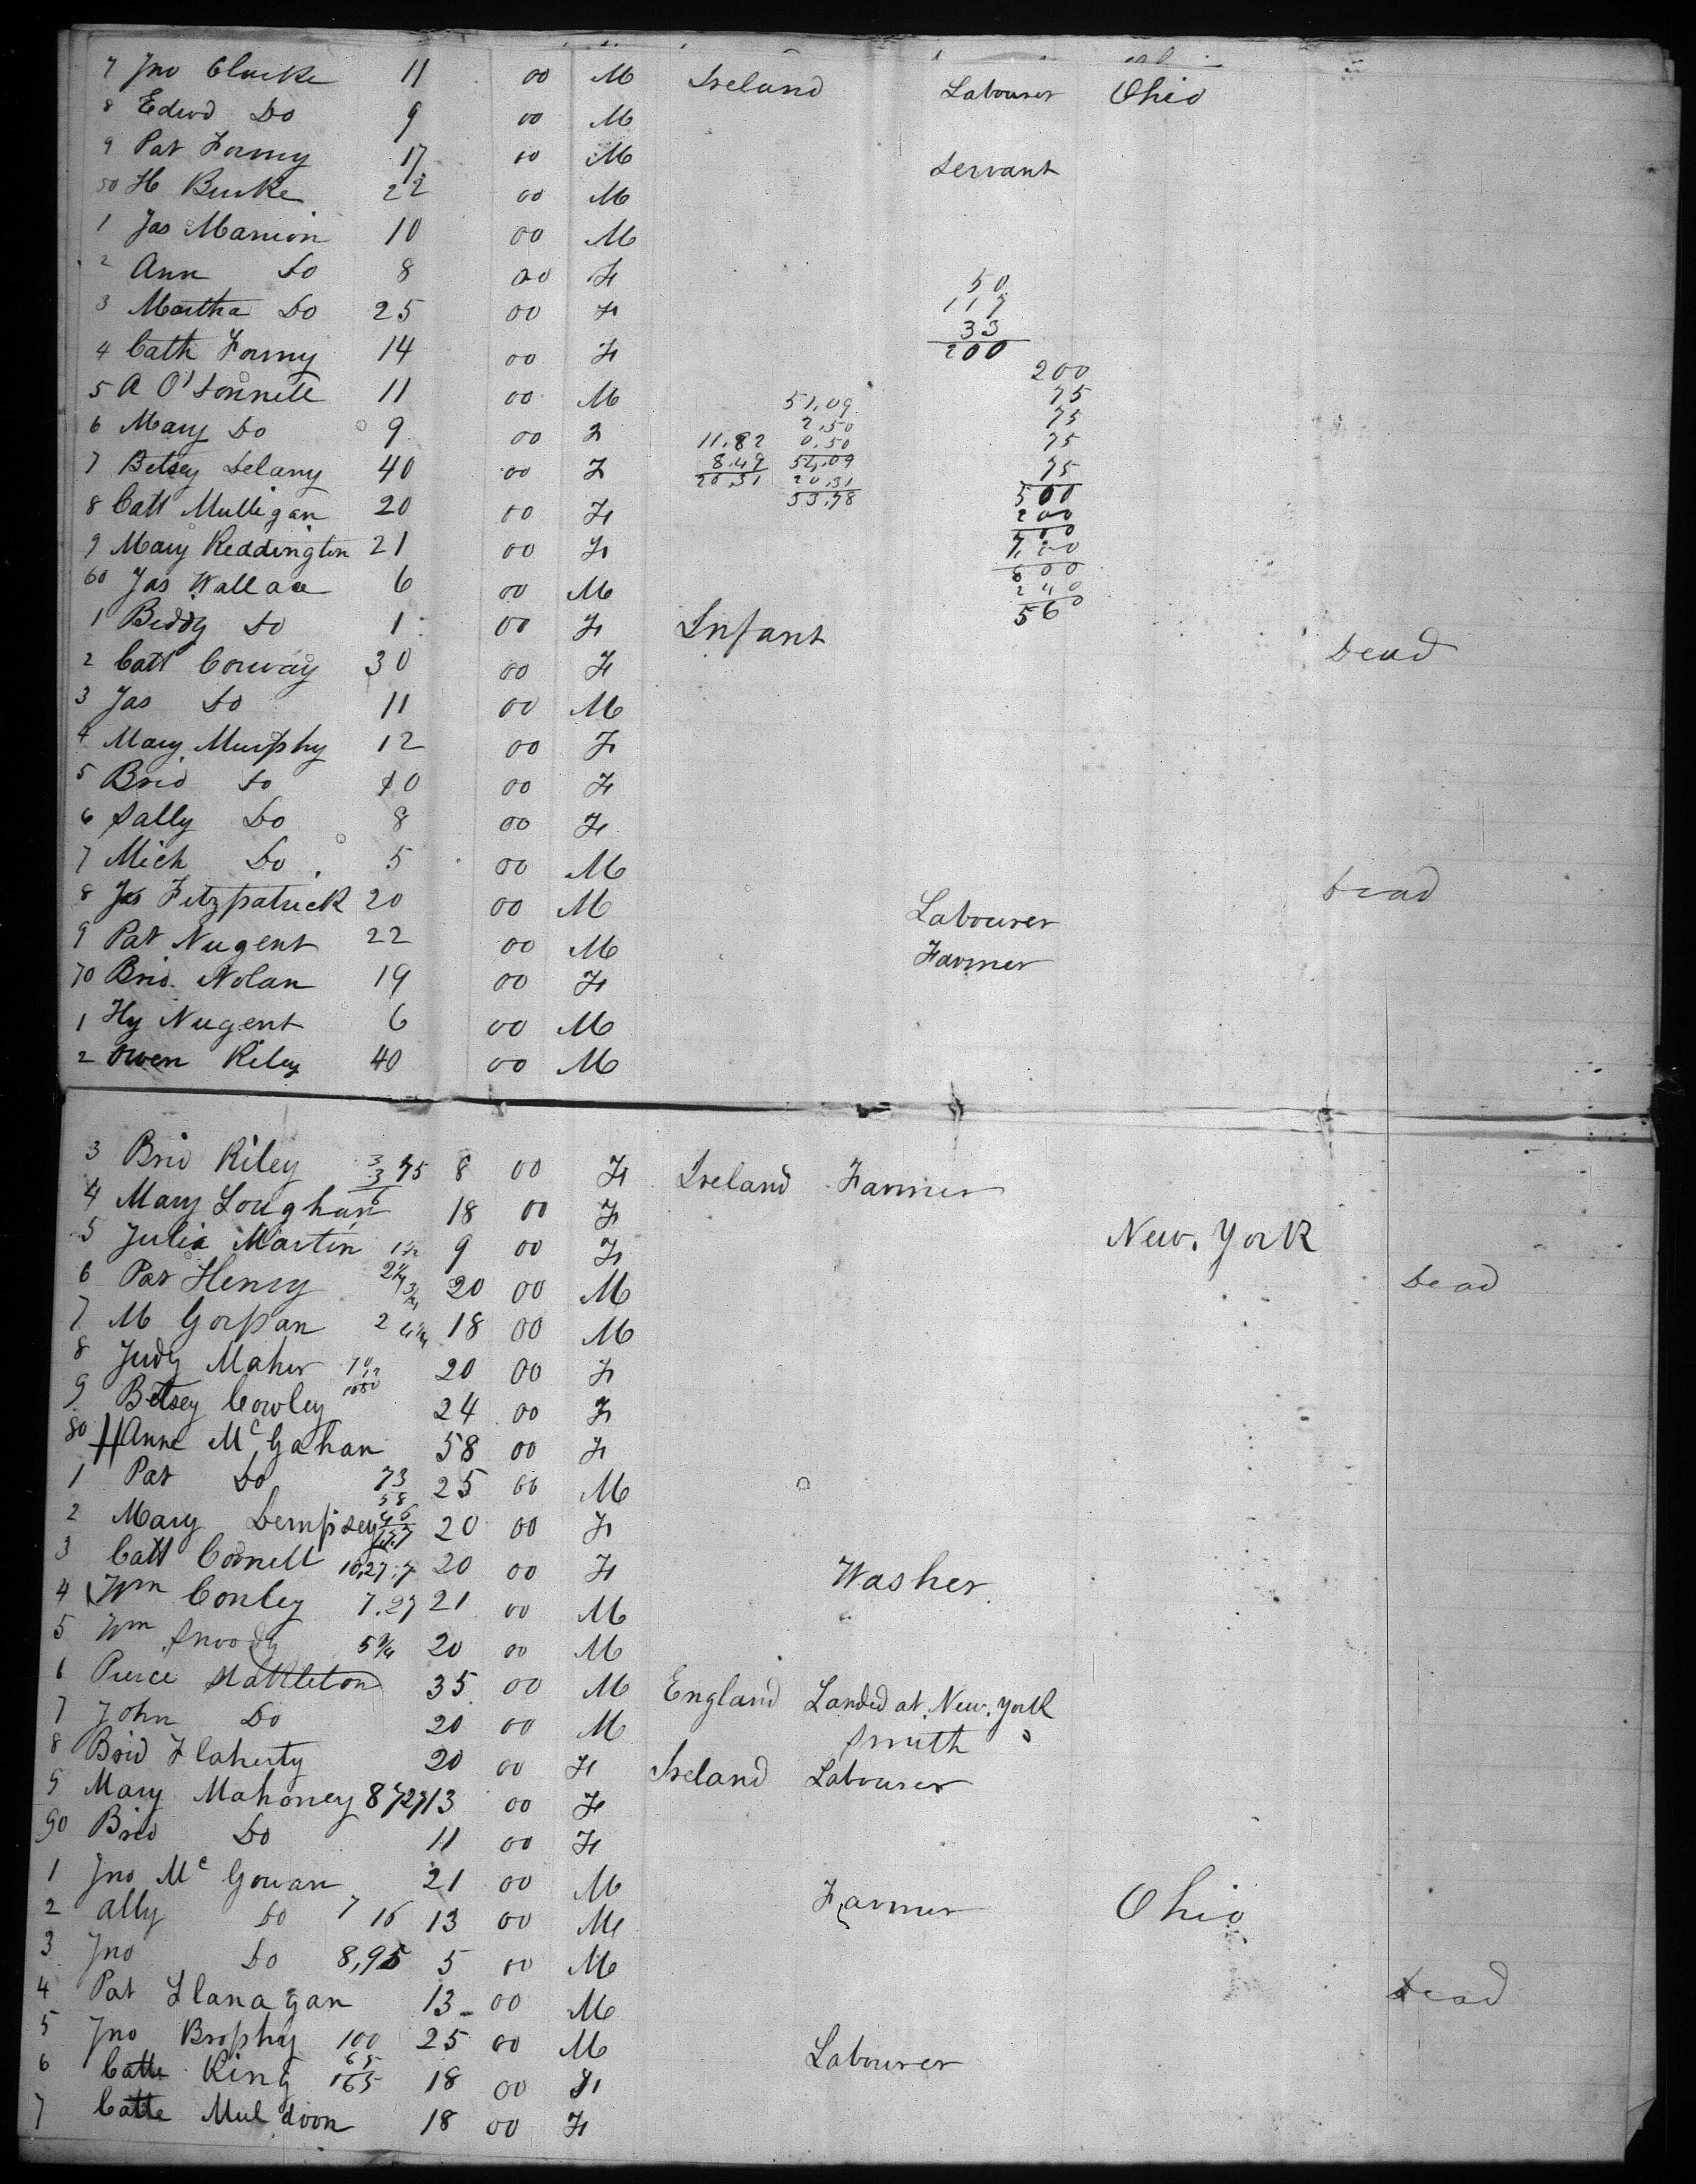 7 Jno Clarke 11 00 M Ireland Labourer Ohio
8 Edwd Do 9 00 M
9 Pat 17 00 M Servant
50 H Burke 22 00 M
1 Jas Manion 10 00 M
2 Ann Do 8 00 F
3 Martha Do 25 00 F
4 Cath 14 00 F
5 A O'Donnell 11 00 M
6 Mary Do 9 00 F
7 Betsey Delany 40 00 F
8 Catt Mulligan 20 00 F
9 Mary Reddington 21 00 F
60 Jas Wallace 6 00 M
1 Biddy Do 1 00 F Infant Dead
2 Catt Conway 30 00 F
3 Jas Do 11 00 M
4 Mary Murphy 12 00 F
5 Brid Do 10 00 F
6 Sally Do 8 00 F
7 Mich Do 5 00 M Dead
8 Jas Fitzpatrick 20 00 M Labourer
9 Pat Nugent 22 00 M Farmer
70 Brid. Nolan 19 00 F
1 Hy Nugent 6 00 M
2 Owen Riley 40 00 M
50
117
33
200
200
75
75
75
75
500
200
51,09
2,50
11.82 0,50
8.49 54,09
20,31 20,31
33,78
560
3 Brid Riley 8 00 F Ireland Farmer
4 Mary Loughan 18 00 F New. York
5 Julia Martin 9 00 F
6 Pat Henry 20 00 M Dead
7 M 18 00 M
8 Judy Maher 20 00 F
9 Betsey Cowley 24 00 F
80 Anne Mc Gahan 58 00 F
1 Pat Do 73 25 00 M
58
2 Mary Dempsey 20 00 F
3 Catt 10,27,7 20 00 F Washer
4 Wm Conley 7.27 21 00 M
5 Wm Snoody 5 3/4 20 00 M
6 Pierce 35 00 M England Landed at New. York
7 John Do 20 00 M Smith
8 Brid Flaherty 20 00 F Ireland Labourer
9 Mary Mahoney 13 00 F
90 Brid Do 11 00 F
1 Jno Mc Gowan 21 00 M Farmer Ohio
2 Ally Do 7 16 13 00 M
3 Jno Do 8,95 5 00 M
4 Pat Flanagan 13 00 M Dead
5 Jno Brophy 100 25 00 M Labourer
65
6 Catte King 165 18 00 F
7 Catte Muldoon 18 00 F